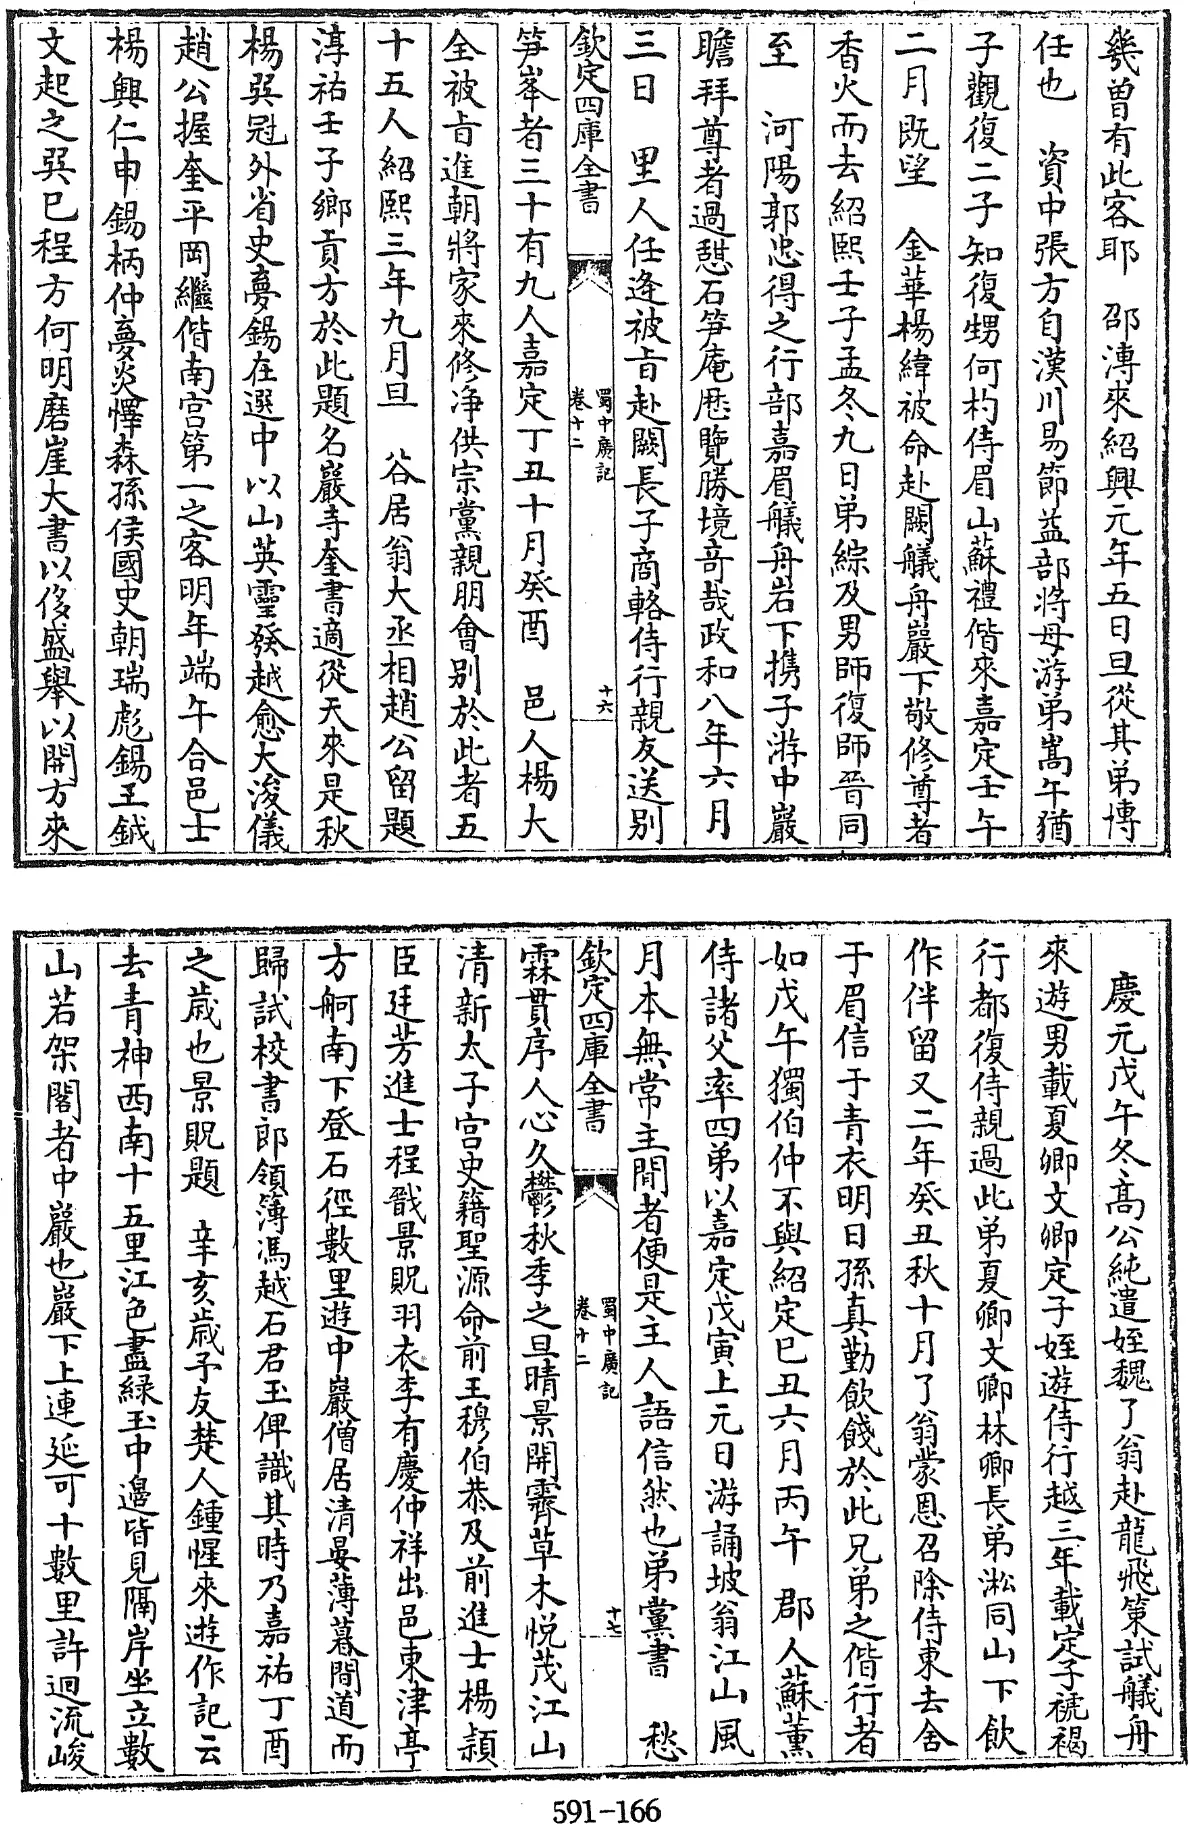 幾曾有此客耶　邵溥來紹興元年五日旦從其弟博
任也　資中張方自漢川易節益部將母游弟嵩午猶
子觀復二子知復甥何杓侍眉山蘇禮偕來嘉定壬午
二月既望　金華楊緯被命赴闕艤舟巖下敬修尊者
香火而去紹熙壬子孟冬九日弟綜及男師復師晉同
至　河陽郭忠得之行部嘉眉艤舟岩下携子游中巖
瞻拜尊者過憇石笋庵歴覽勝境竒哉政和八年六月
三日　里人任逄被㫖赴闕長子商輅侍行親友送别
欽定四庫全書
蜀中廣記
卷十二
十六
笋峯者三十有九人嘉定丁丑十月癸酉　邑人楊大
全被㫖進朝將家來修净供宗黨親朋會别於此者五
十五人紹熙三年九月旦　谷居翁大丞相趙公留題
淳祐壬子鄉貢方於此題名巖寺奎書適從天來是秋
楊㢲冠外省史夢錫在選中以山英靈發越愈大浚儀
趙公握奎平岡繼偕南宫第一之客明年端午合邑士
楊興仁申錫柄仲夢炎懌森孫侯國史朝瑞彪錫王鉞
文起之㢲巳程方何明磨崖大書以侈盛舉以開方來
慶元戊午冬高公純遣姪魏了翁赴龍飛策試艤舟
來遊男載夏卿文卿定子姪遊侍行越三年載定子褫褐
行都復侍親過此弟夏卿文卿林卿長弟淞同山下飲
作伴留又二年癸丑秋十月了翁蒙恩召除侍東去舍
于眉信于青衣明日孫真勤飲餞於此兄弟之偕行者
如戊午獨伯仲不與紹定巳丑六月丙午　郡人蘇薰
侍諸父率四弟以嘉定戊寅上元日游誦坡翁江山風
月本無常主閒者便是主人語信然也弟黨書　愁
欽定四庫全書
蜀中廣記
卷十二
十七
霖貫序人心久鬱秋季之旦晴景開霽草木悦茂江山
清新太子宫史籍聖源命前王穆伯恭及前進士楊頴
臣廷芳進士程戩景貺羽衣李有慶仲祥出邑東津亭
方舸南下登石徑數里遊中巖僧居清晏薄暮間道而
歸試校書郎領簿馮越石君玉俾識其時乃嘉祐丁酉
之歳也景貺題　辛亥歳予友楚人鍾惺來遊作記云
去青神西南十五里江色盡緑玉中邉皆見隔岸坐立數
山若架閣者中巖也巖下上連延可十數里許迴流峻
591-166